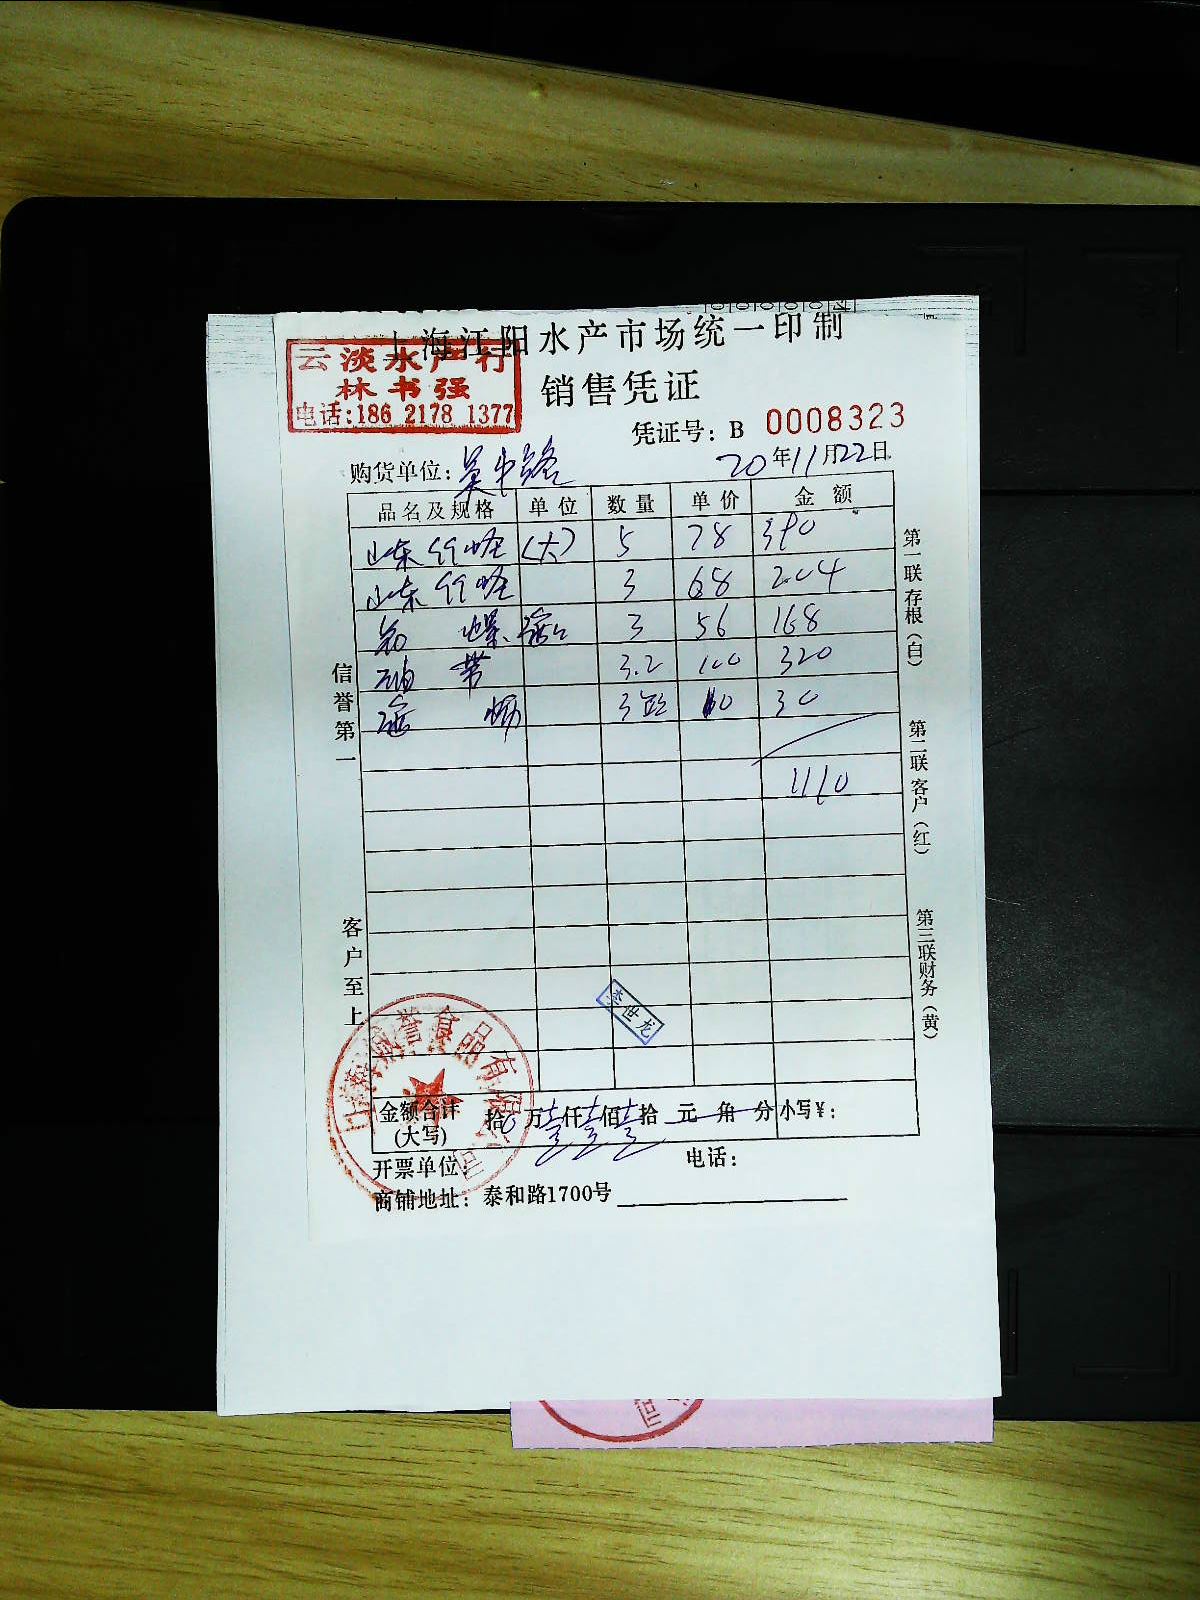 上海江阳水产市场统一印制
云淡水产行
林书强
电话:186 2178 1377
销售凭证
凭证号: B 0008323
购货单位: 吴中路
20年11月22日
品名及规格 单位 数量 单价 金额
山东 (大) 5 78 390
山东 3 68 204
螺 3 56 168
带 3.2 100 320
3 10 30
1110
信誉第一
客户至上
第一联存根(白)
第二联客户(红)
第三联财务(黄)
李世龙
誉食品有限公司
金额合计(大写) 拾 万壹仟壹佰壹拾 元 角 分 小写¥:
开票单位: 电话:
商铺地址: 泰和路1700号
司